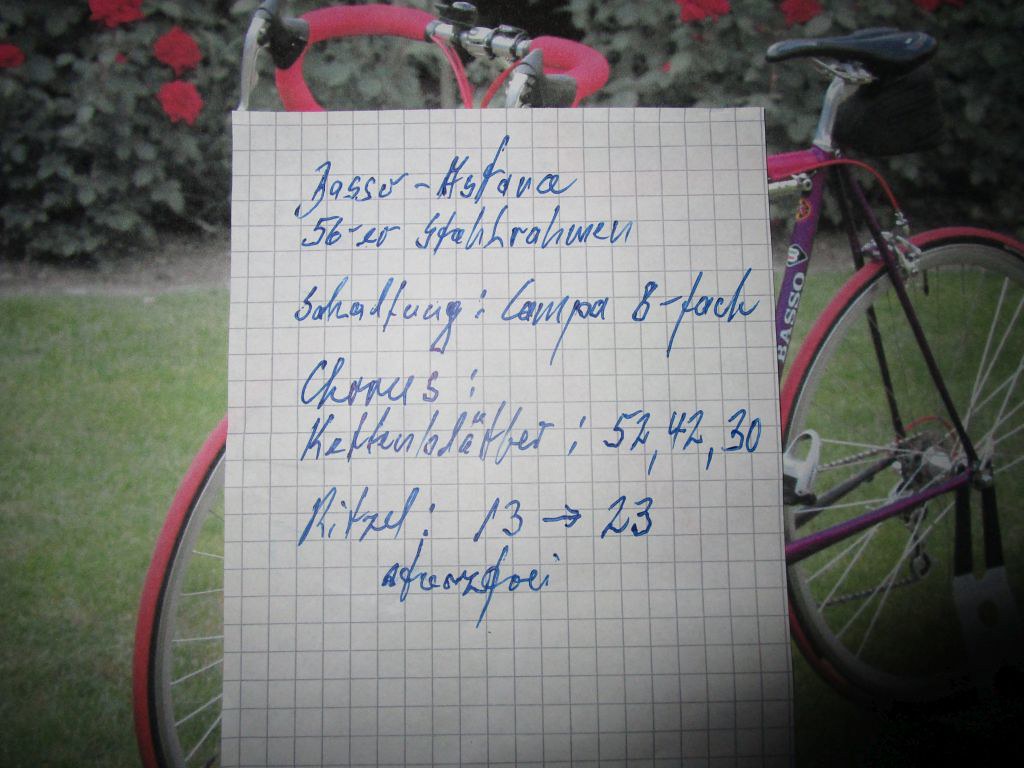 Basso - Astana
56-er Stahlrahmen
Schaltung: Campa 8-fach
Chorus:
Kettenblätter: 52, 42, 30
Ritzel: 13 → 23
sturzfrei
BASSO